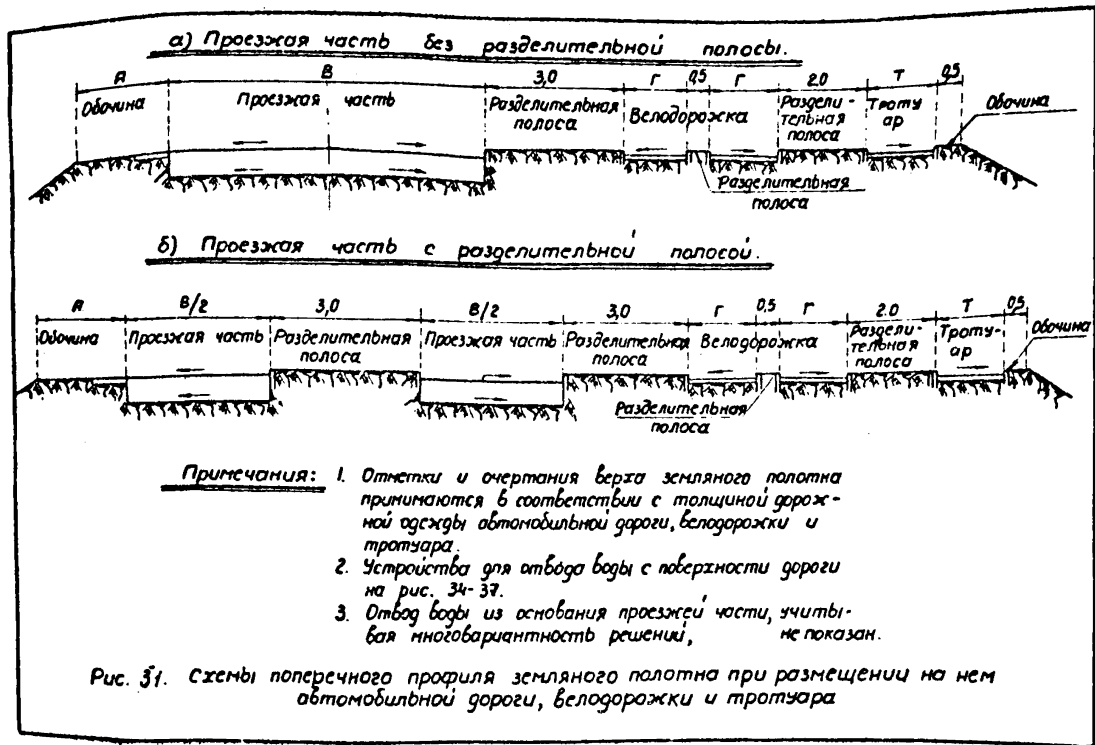 а) Проезжая часть без разделительной полосы.
А В 3,0 Г 0,5 Г 2.0 Т 0,5
Обочина
Проезжая часть
Разделительная
полоса
Велодорожка
Раздели-
тельная
полоса
Троту
ар
Обочина
Разделительная
полоса
б) Проезжая часть с разделительной полосой.
А В/2 3,0 В/2 3,0 Г 0,5 Г 2.0 Т 0,5
Обочина
Проезжая часть
Разделительная
полоса
Проезжая часть
Разделительная
полоса
Велодорожка
Раздели-
тельная
полоса
Троту-
ар
Обочина
Разделительная
полоса
Примечания: 1. Отметки и очертания верха земляного полотна
принимаются в соответствии с толщиной дорож-
ной одежды автомобильной дороги, велодорожки и
тротуара.
2. Устройства для отвода воды с поверхности дороги
на рис. 34-37.
3. Отвод воды из основания проезжей части, учиты-
вая многовариантность решений, не показан.
Рис. 31. Схемы поперечного профиля земляного полотна при размещении на нем
автомобильной дороги, велодорожки и тротуара